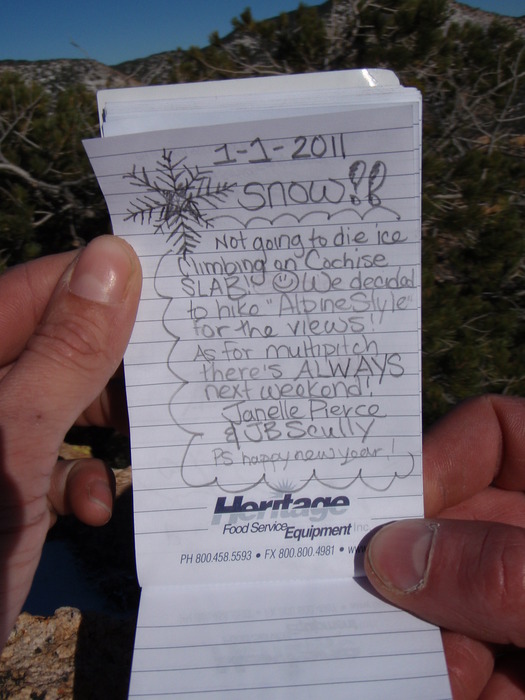 1-1-2011
SNOW!!
Not going to die ice
Climbing on Cochise
SLAB!! We decided
to hike "Alpine Style"
for the views!!
As for multipitch
there's ALWAYS
next weekend!
Janelle Pierce
& JB Scully
PS happy new year!
Heritage
Food Service Equipment Inc.
PH 800.458.5593 • FX 800.800.4981 • ww